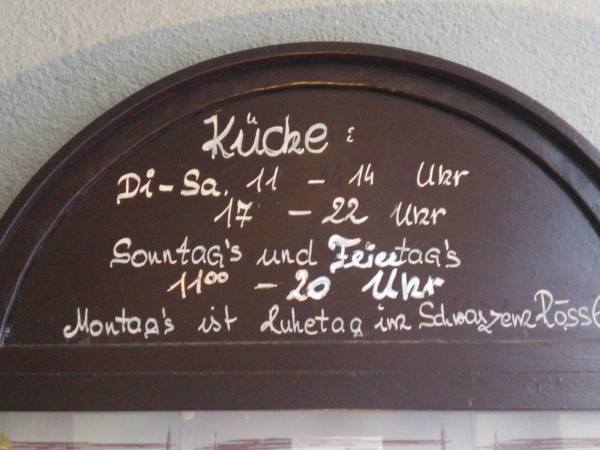 Küche :
Di-Sa. 11 - 14 Uhr
17 - 22 Uhr
Sonntag's und Feiertag's
11⁰⁰ - 20 Uhr
Montag's ist Ruhetag im Schwarzem